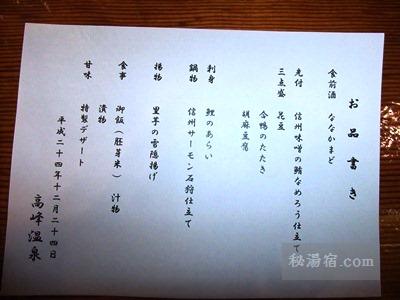 お品書き
食前酒 ななかまど
先付 信州味噌の鯵なめろう仕立て
三点盛 昆豆
合鴨のたたき
胡麻豆腐
刺身 鯉のあらい
鍋物 信州サーモン石狩仕立て
揚物 里芋の雪隠揚げ
食事 御飯(胚芽米) 汁物
漬物
甘味 特製デザート
平成二十四年十二月二十四日
高峰温泉
秘湯宿.com